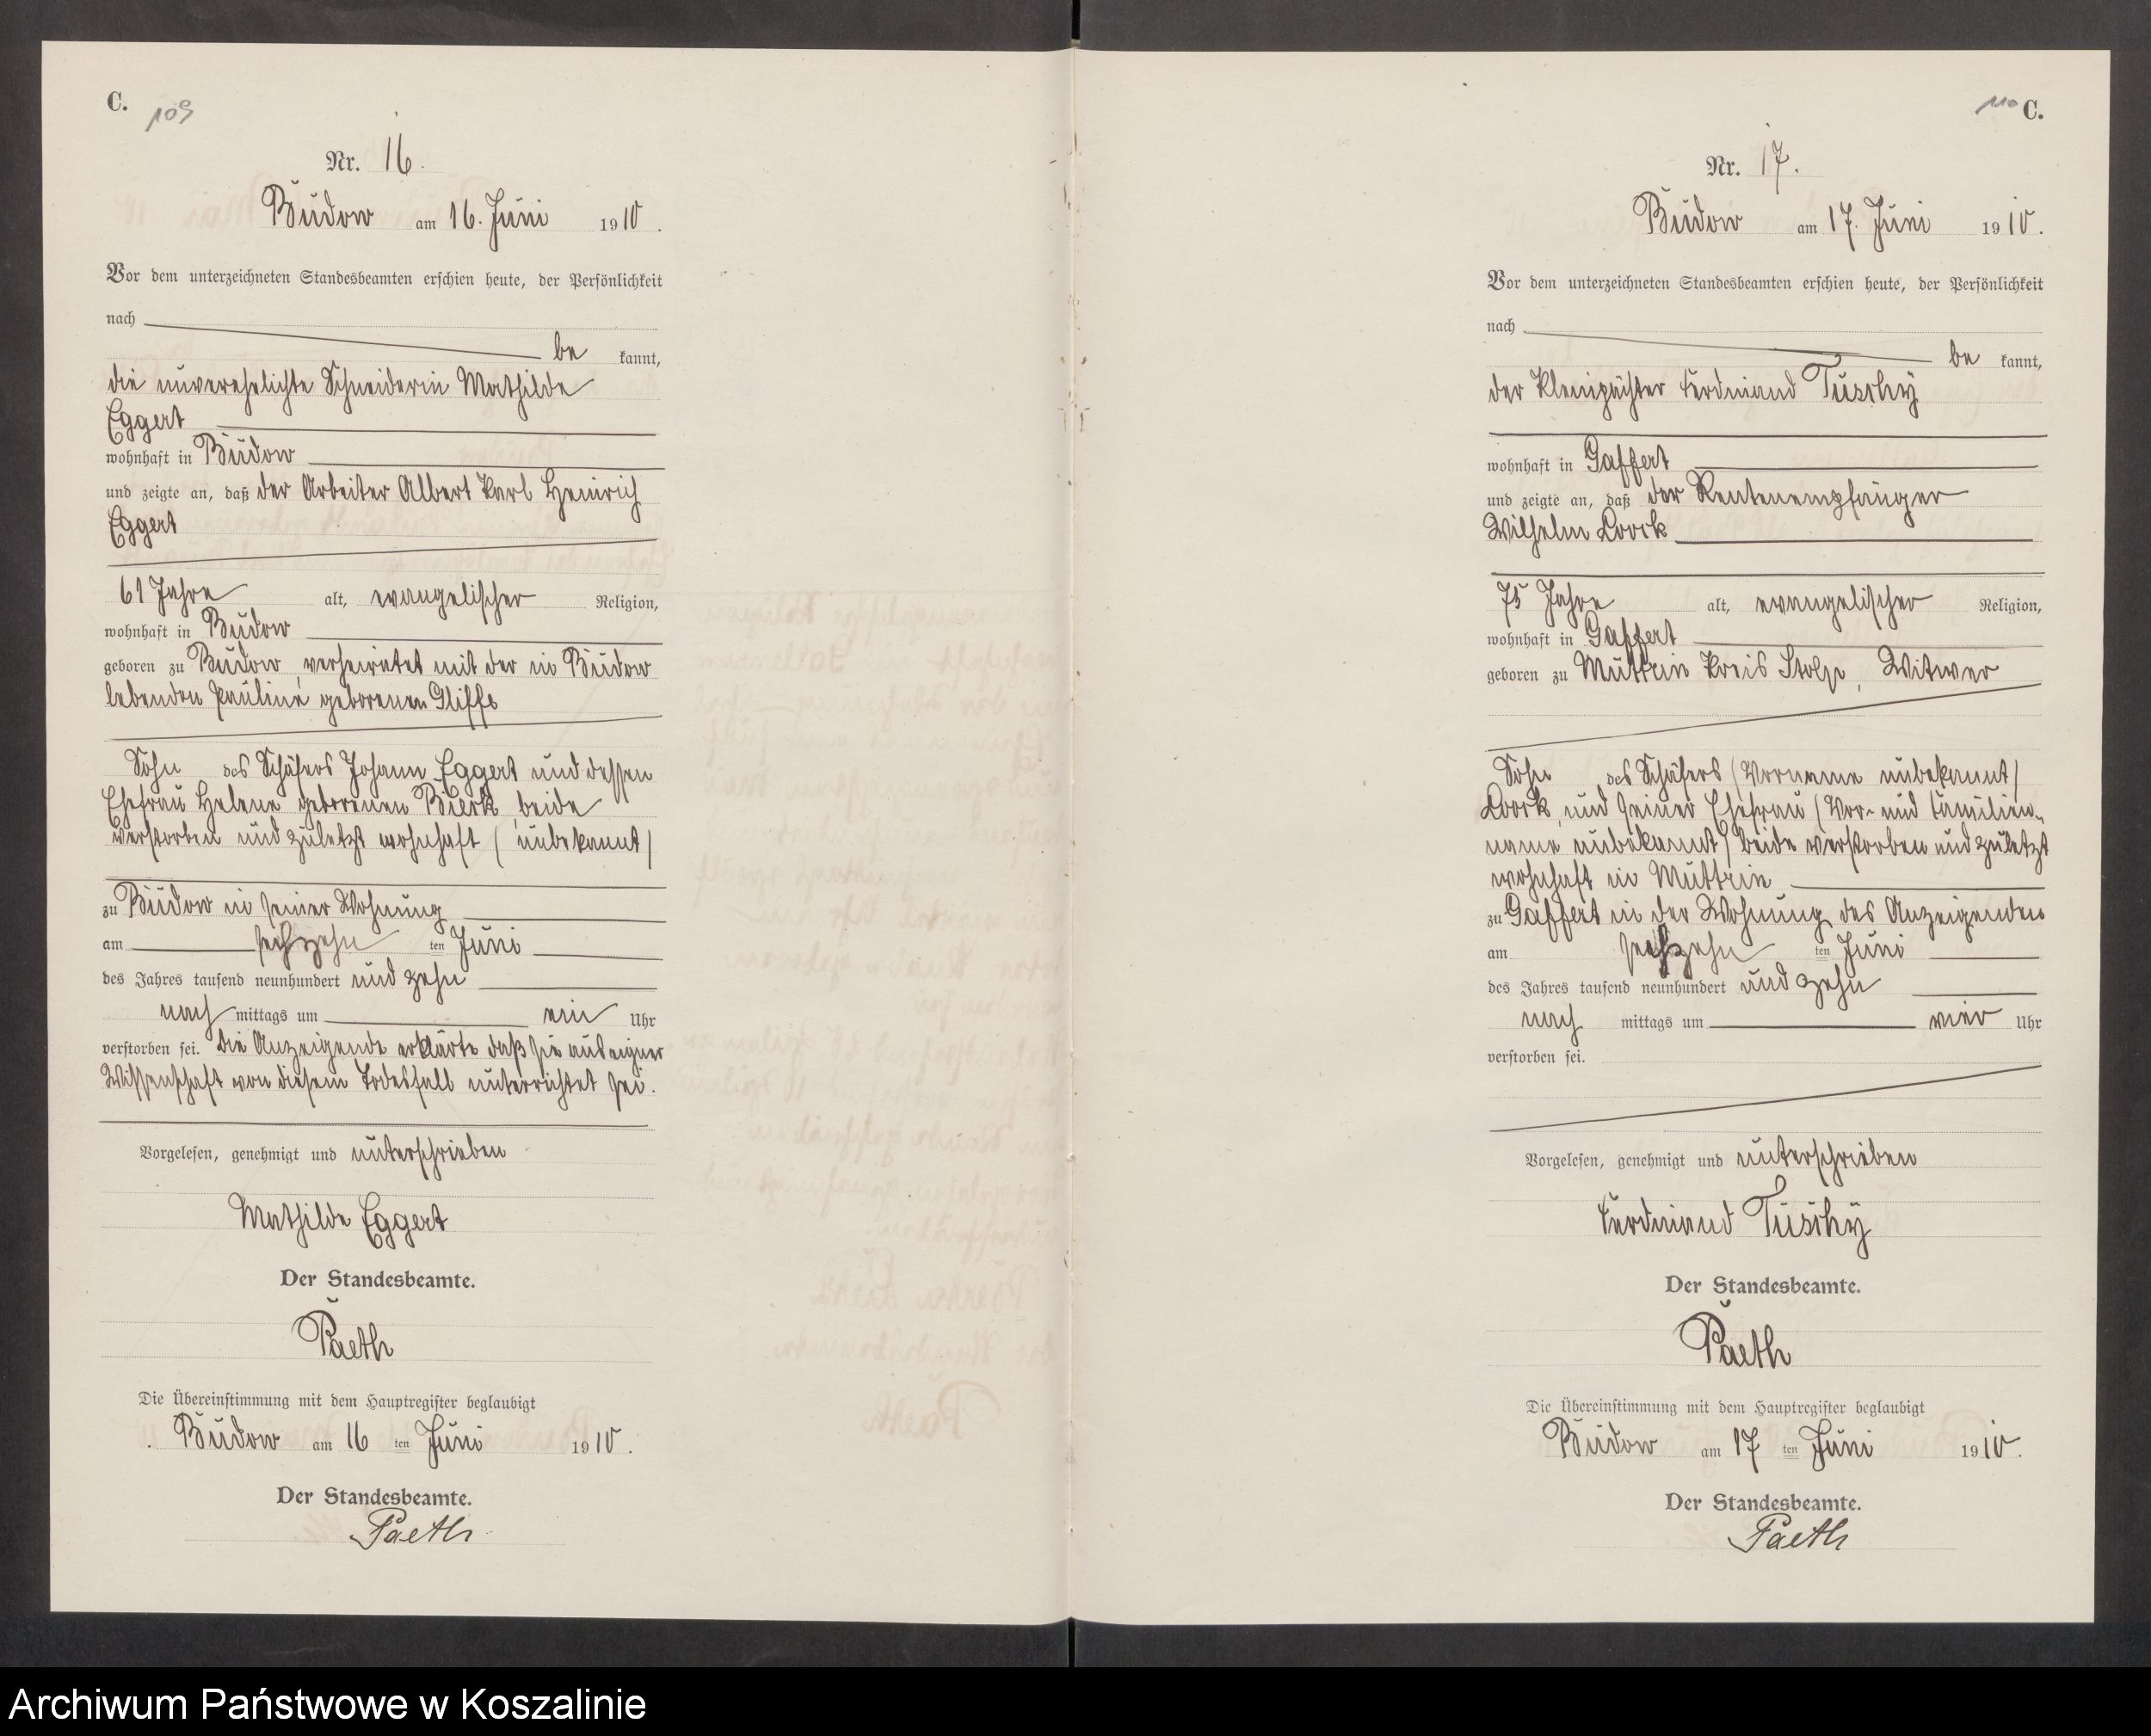 C. 109
Nr. 16.
Budow am 16. Juni 1910.
Vor dem unterzeichneten Standesbeamten erschien heute, der Persönlichkeit
nach
be kannt,
die unverehelichte Schneiderin Mathilde
Eggert
wohnhaft in Budow
und zeigte an, daß der Arbeiter Albert Karl Heinrich
Eggert
61 Jahre alt, evangelischer Religion,
wohnhaft in Budow
geboren zu Budow, verheiratet mit der in Budow
lebenden Pauline geborenen
Sohn des Schäfers Johann Eggert und dessen
Ehefrau Helene geborenen beide
verstorben und zuletzt wohnhaft (unbekannt)
zu Budow in seiner Wohnung
am sechzehn ten Juni
des Jahres tausend neunhundert und zehn
nach mittags um ein Uhr
verstorben sei. Die Anzeigende erklärte daß sie aus eigner
Wissenschaft von diesem Todesfall unterrichtet sei.
Vorgelesen, genehmigt und unterschrieben
Mathilde Eggert
Der Standesbeamte.
Paeth
Die Übereinstimmung mit dem Hauptregister beglaubigt
Budow am 16 ten Juni 1910.
Der Standesbeamte.
Paeth
110 C.
Nr. 17.
Budow am 17. Juni 1910.
Vor dem unterzeichneten Standesbeamten erschien heute, der Persönlichkeit
nach
be kannt,
der Kleinpächter Ferdinand Tuschy
wohnhaft in Gaffert
und zeigte an, daß der Rentenempfänger
Wilhelm Loock
75 Jahre alt, evangelischer Religion,
wohnhaft in Gaffert
geboren zu Muttrin Kreis Stolp, Witwer
Sohn des Schäfers (Vorname unbekannt)
Loock, und seiner Ehefrau (Vor- und Familien-
name unbekannt) beide verstorben und zuletzt
wohnhaft in Muttrin
zu Gaffert in der Wohnung des Anzeigenden
am sechzehn ten Juni
des Jahres tausend neunhundert und zehn
nach mittags um vier Uhr
verstorben sei.
Vorgelesen, genehmigt und unterschrieben
Ferdinand Tuschy
Der Standesbeamte.
Paeth
Die Übereinstimmung mit dem Hauptregister beglaubigt
Budow am 17 ten Juni 1910.
Der Standesbeamte.
Paeth
Archiwum Państwowe w Koszalinie